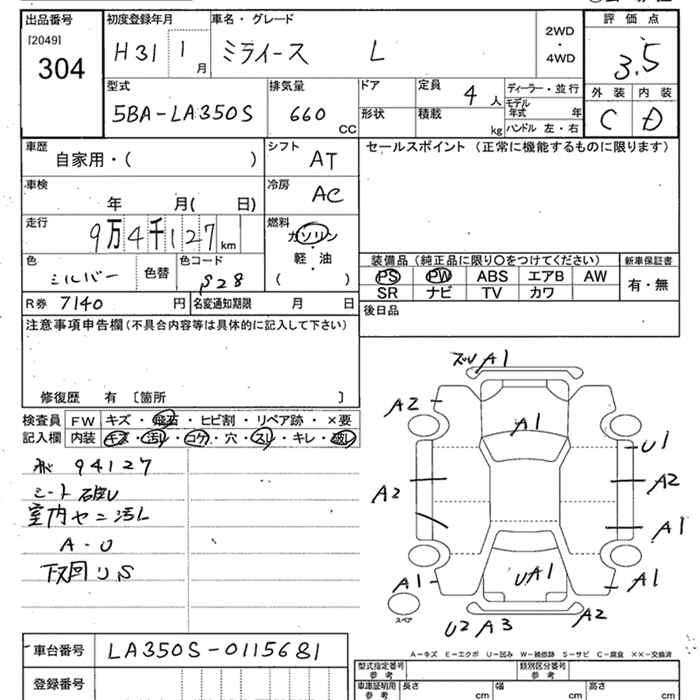 出品番号
[2049]
304
初度登録年月
H31 1 月
車名・グレード
ミライース L
2WD
・
4WD
評価点
3.5
外装 内装
C D
型式
5BA-LA350S
排気量
660 CC
ドア
形状
定員 4 人
積載 kg
ディーラー・並行
モデル年式 年
ハンドル 左・右
車歴
自家用・( )
シフト AT
セールスポイント (正常に機能するものに限ります)
車検
年 月( 日)
冷房 AC
走行
9万4千127 km
燃料
ガソリン
・
軽・油
( )
色
シルバー
色替
色コード
S28
装備品 (純正品に限り○をつけてください)
新車保証書
PS PW ABS エアB AW
有・無
SR ナビ TV カワ
R券 7140 円
名変通知期限 月 日
後日品
注意事項申告欄 (不具合内容等は具体的に記入して下さい)
修復歴 有 〔箇所 〕
検査員
記入欄
FW キズ・飛石・ヒビ割・リペア跡・×要
内装 キズ・汚レ・コゲ・穴・スレ・キレ・破レ
94127
シート破レ
室内ヤニ汚レ
A-U
下回りS
A1
A2
A1
U1
A2
A2
A1
A1
UA1
A1
スペア
U2 A3
A2
A-キズ E-エクボ U-凹み W-補修跡 S-サビ C-腐食 ××-交換済
車台番号 LA350S-0115681
登録番号
型式指定番号
参考
類別区分番号
参考
車庫証明用
参考
長さ cm
幅 cm
高さ cm